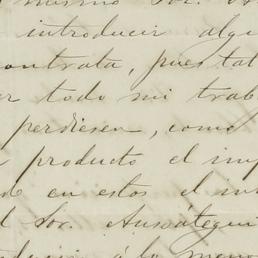 mismo Sor.
introducir algu
contrata, pues tal
todo mi trab
perdiesen, como
producto el imp
en estos el in
Sor. Amsátegui
á lo menos